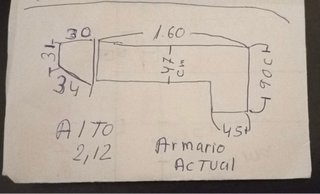 30
1.60
31
47
CM
34
190CM
45
AlTO
2,12
Armario
AcTUAl